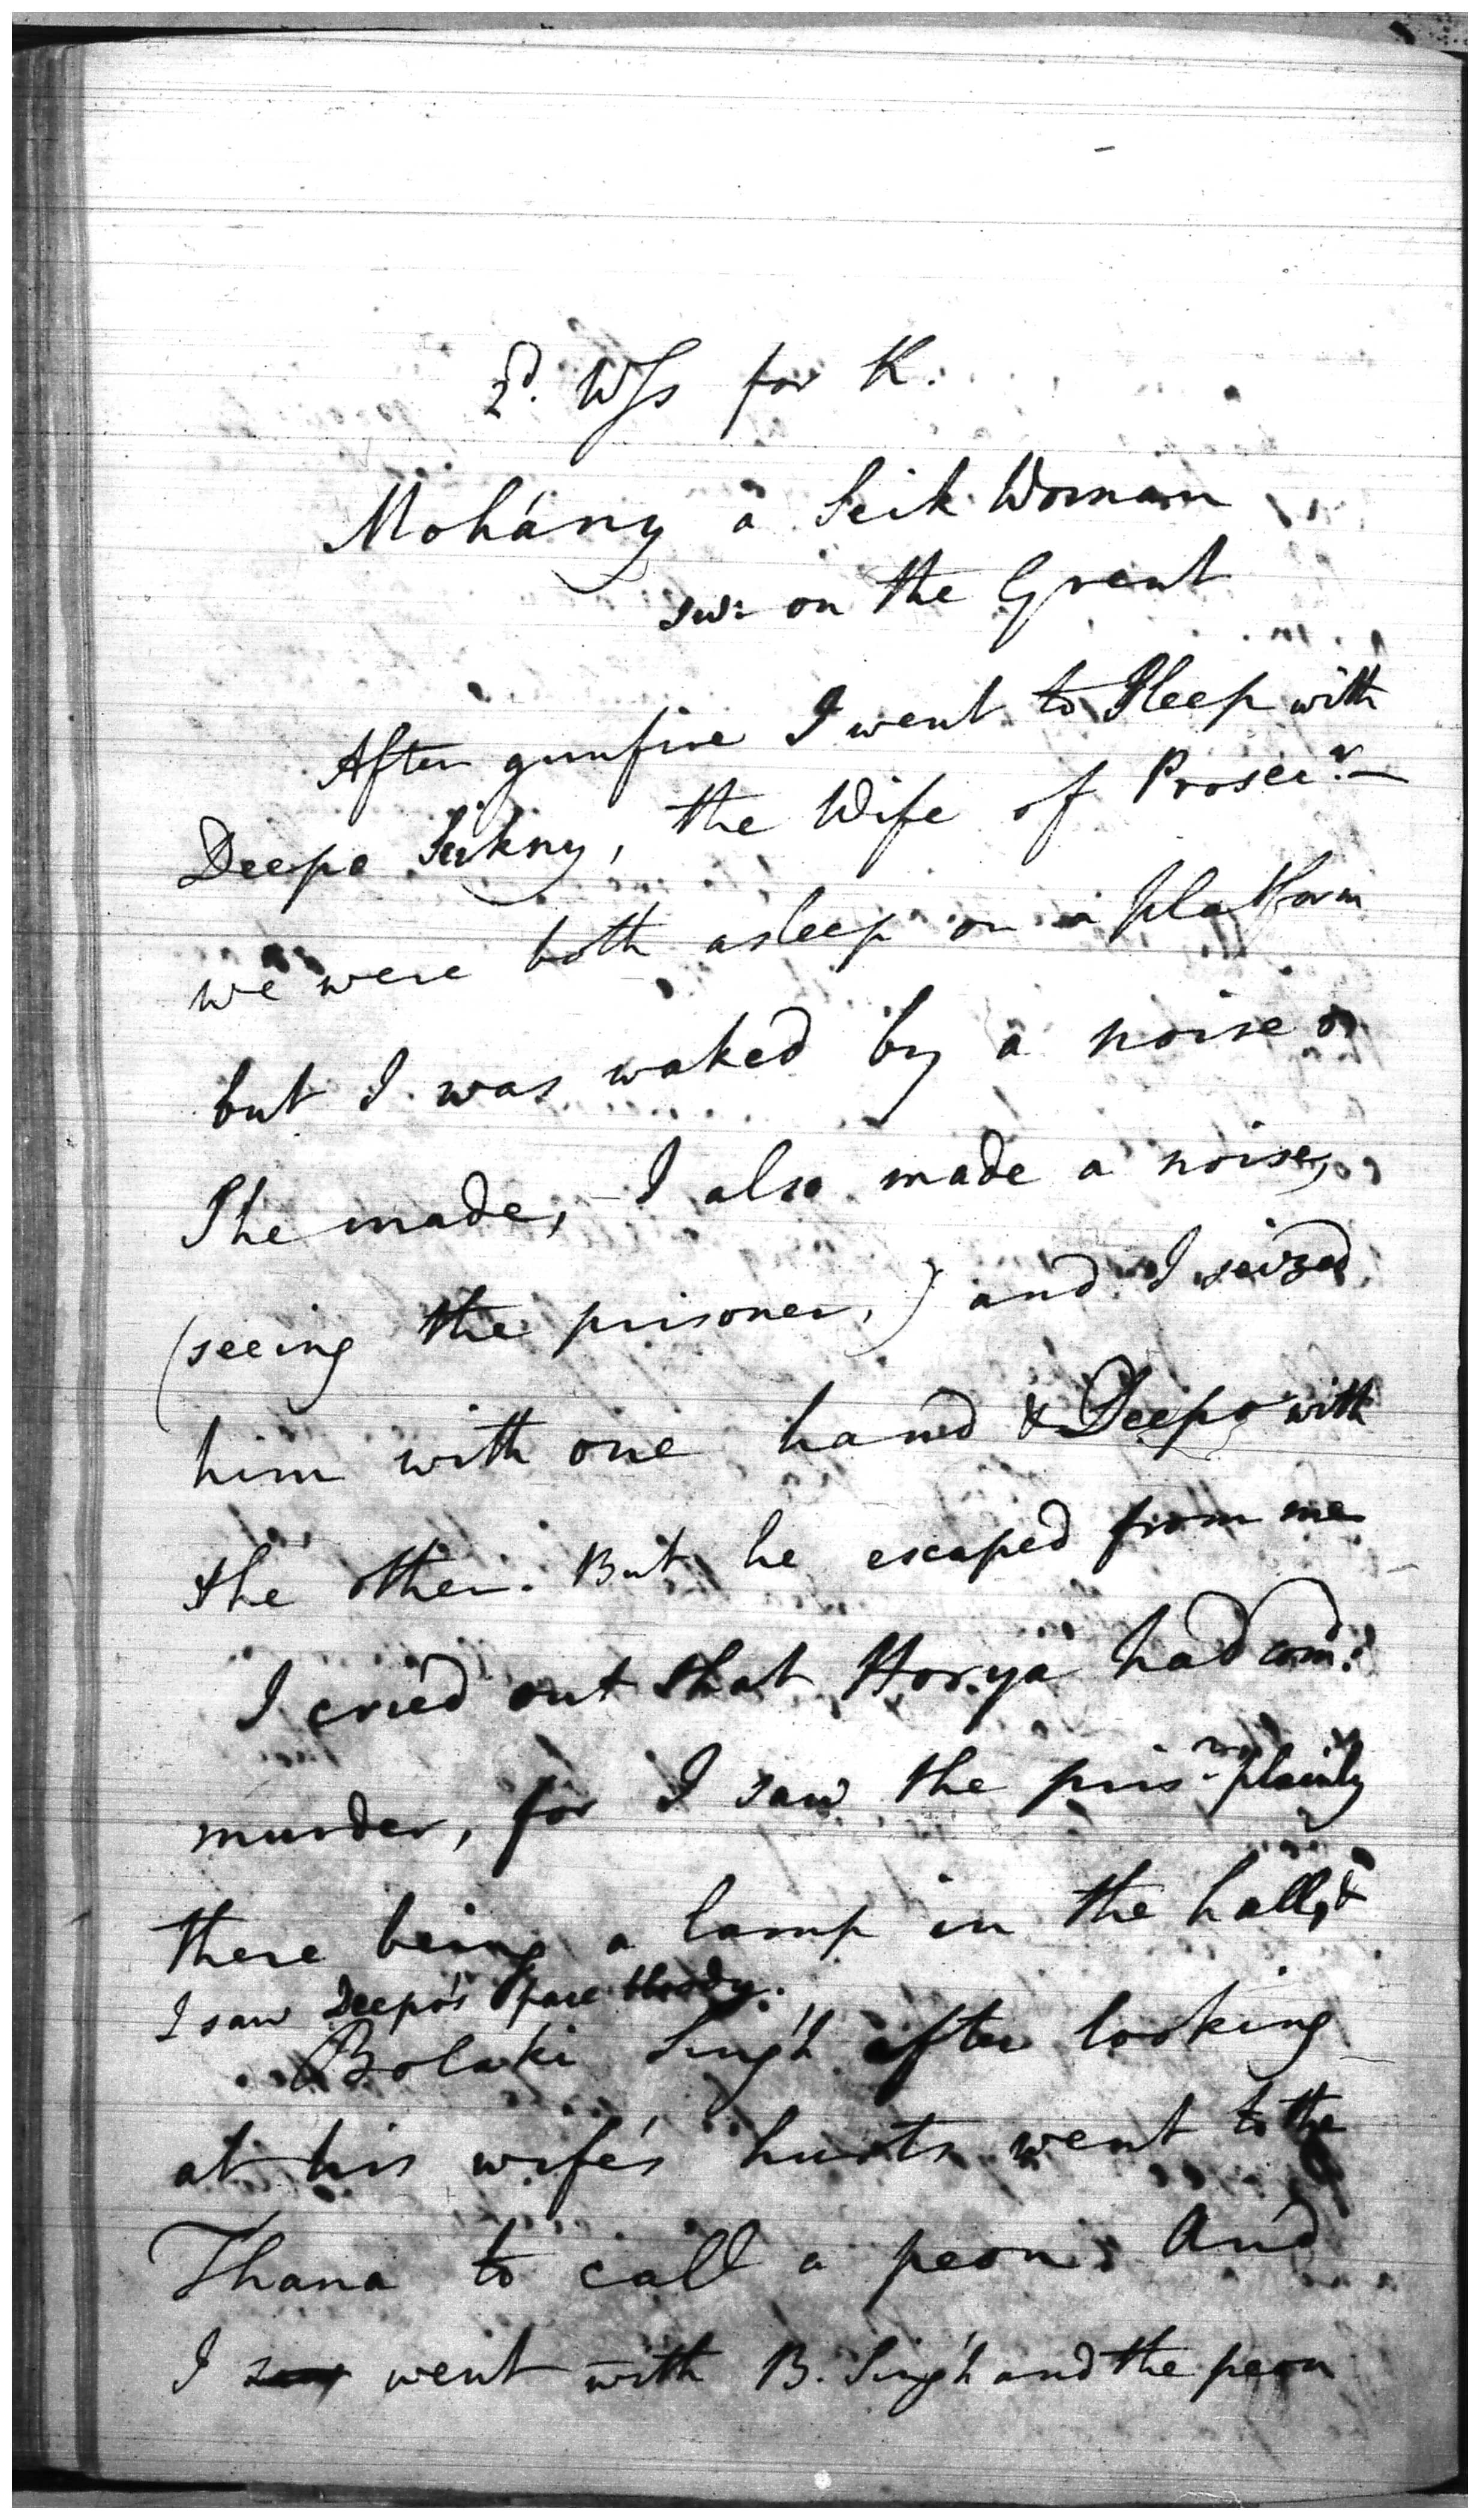 2d. Wss for K.
Mohány a Seik Woman
sw: on the Grant
After gunfire I went to Sleep with
Deepo Seikny, the Wife of Prosecr.
we were both asleep on a platform
but I was waked by a noise
She made, - I also made a noise,
(seeing the prisoner,) and I seized
him with one hand & Deepo with
the other. But he escaped from me
I cried out that Horya had comd.
murder, for I saw the prisr. plainly
there being a lamp in the hall, &
I saw Deepo's face bloody.
Bolaki Sing'h after looking
at his wife's hurts went to the
Thana to call a peon. And
I went with B. Sing'h and the peon